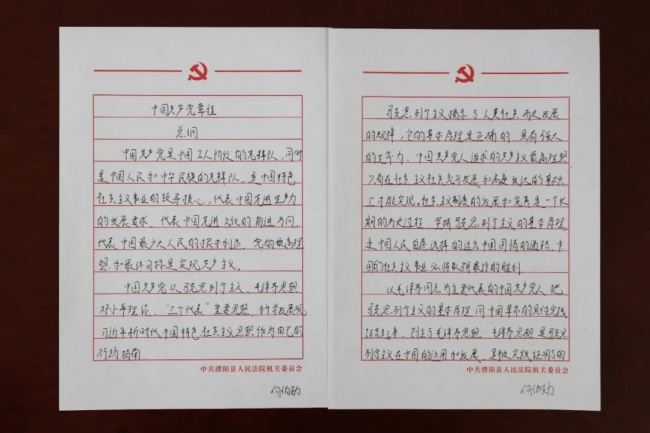 中国共产党章程
总纲
中国共产党是中国工人阶级的先锋队，同时
是中国人民和中华民族的先锋队，是中国特色
社会主义事业的领导核心，代表中国先进生产力
的发展要求，代表中国先进文化的前进方向，
代表中国最广大人民的根本利益。党的最高理
想和最终目标是实现共产主义。
中国共产党以马克思列宁主义、毛泽东思想、
邓小平理论、“三个代表”重要思想、科学发展观、
习近平新时代中国特色社会主义思想作为自己的
行动指南。
中共濮阳县人民法院机关委员会
马克思列宁主义揭示了人类社会历史发展
的规律，它的基本原理是正确的，具有强大
的生命力。中国共产党人追求的共产主义最高理想
只有在社会主义社会充分发展和高度发达的基础
上才能实现。社会主义制度的发展和完善是一个长
期的历史过程。坚持马克思列宁主义的基本原理，
走中国人民自愿选择的适合中国国情的道路，中
国的社会主义事业必将取得最终的胜利。
以毛泽东同志为主要代表的中国共产党人，把
马克思列宁主义的基本原理同中国革命的具体实践
结合起来，创立了毛泽东思想。毛泽东思想是马克思
列宁主义在中国的运用和发展，是被实践证明了的
中共濮阳县人民法院机关委员会